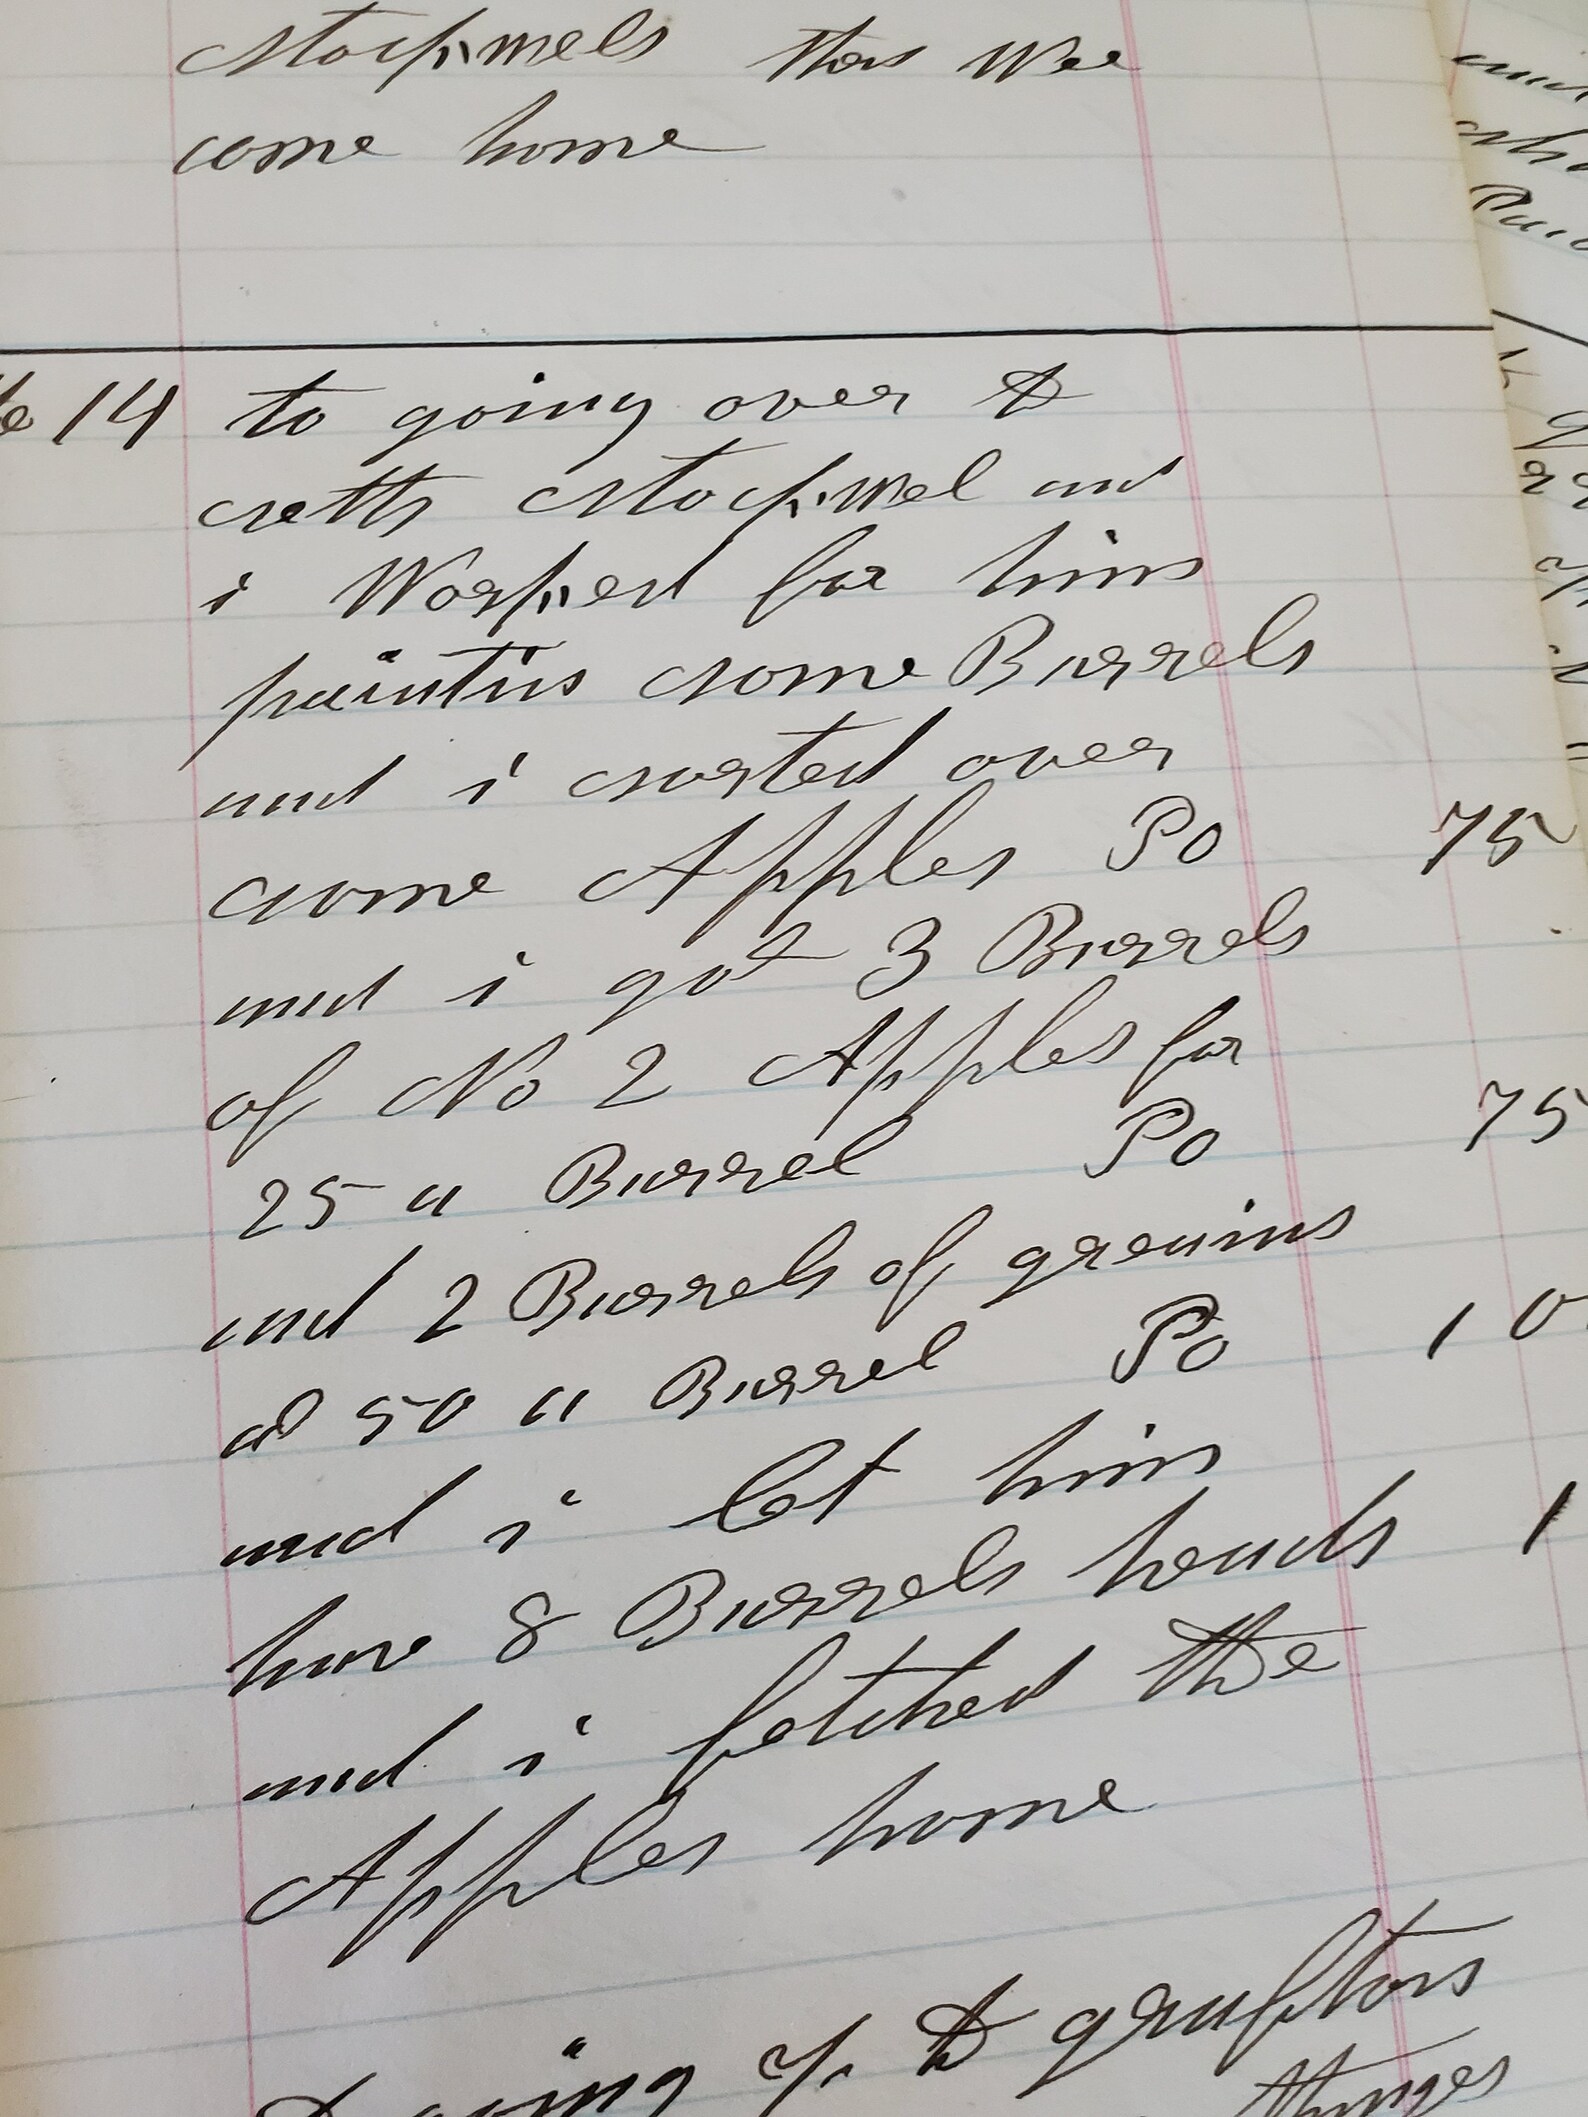 Stockwels then Wee
come home
14 to going over to
seths Stockwel and
i Worked for him
paintin some Barrels
and i sorted over
some Apples Po 75
and i got 3 Barrels
of No 2 Apples for
25 a Barrel Po 75
and 2 Barrels of greanins
at 50 a Barrel Po 1 0
and i let him
have 8 Barrels heads 1
and i fetched the
Apples home
going to graftons
things